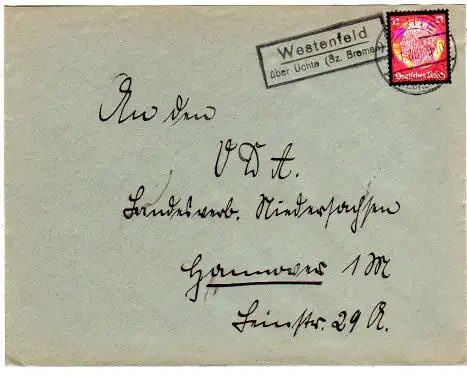 Westenfeld
über Uchte (Bz. Bremen)
12 12
Deutsches Reich
An den
V D A.
Landesverb. Niedersachsen
Hannover 1 M
Leinstr. 29 A.